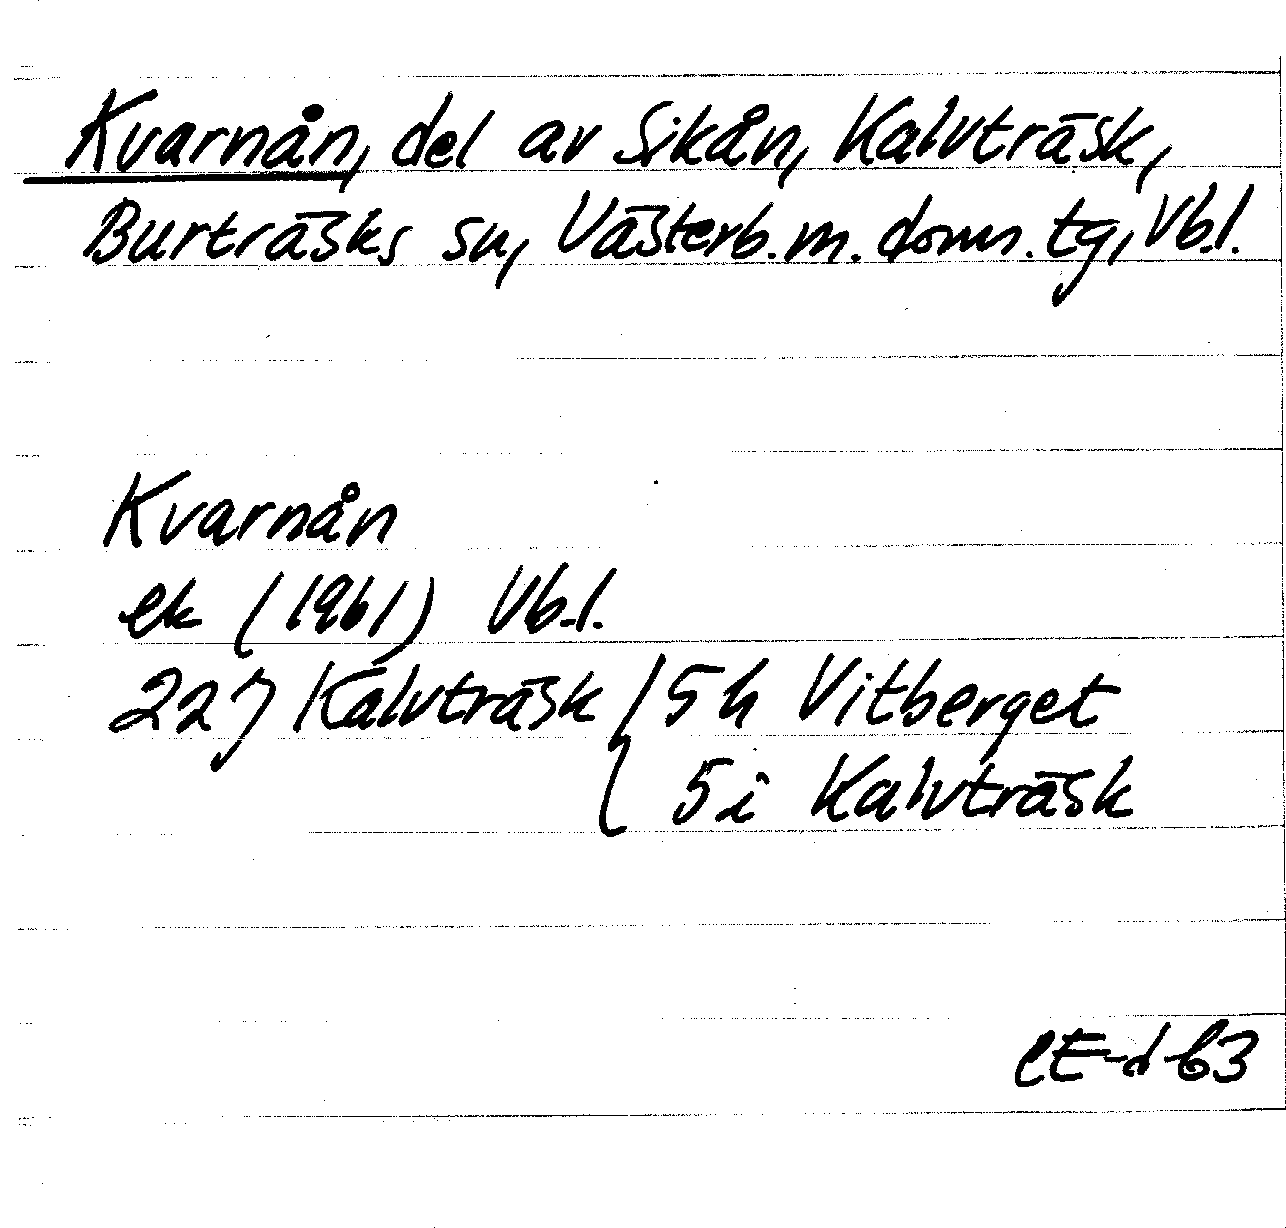 Kvarnån, del av Sikån, Kalvträsk,
Burträsks sn, Västerb. m. doms. tg, Vb.l.
Kvarnån
ek (1961) Vb.l.
22J Kalvträsk / 5h Vitberget
5i Kalvträsk